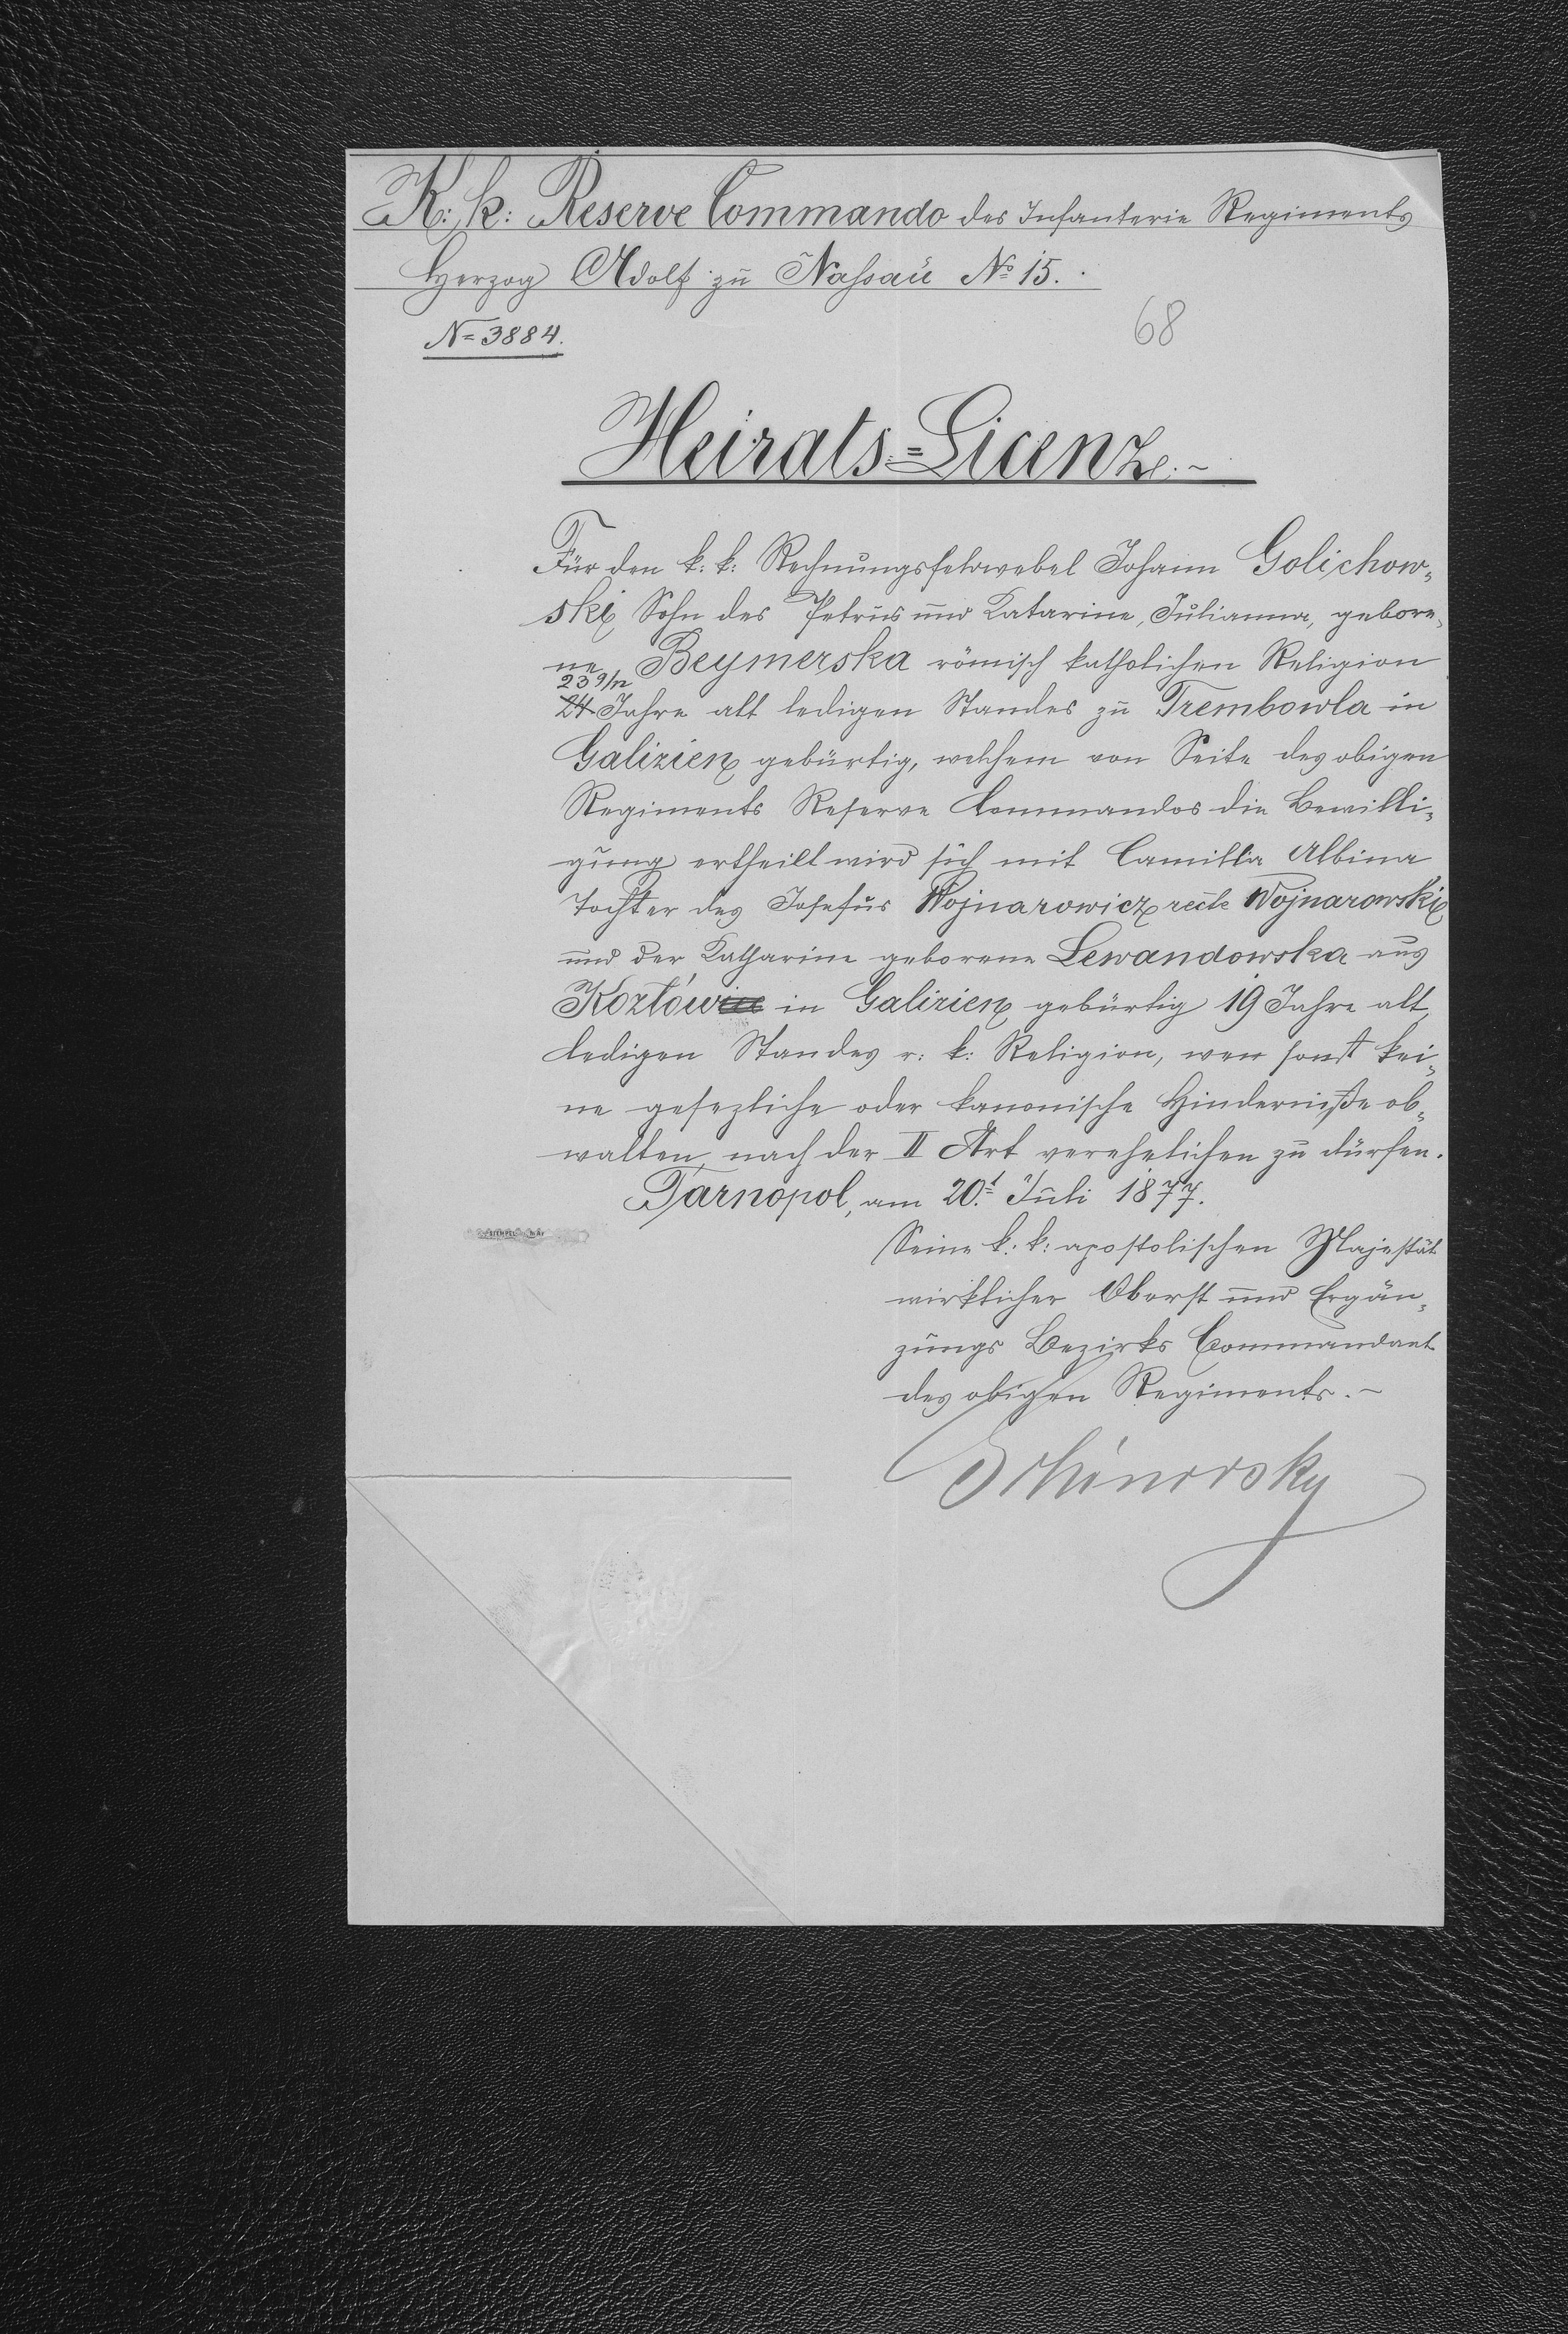 K: k: Reserve Commando des Infanterie Regiments
Herzog Adolf zu Nassau No 15.
N= 3884.
68
Heirats=Licenz.
Für den k. k: Rechnungsfeldwebel Johann Golichow-
ski Sohn des Petrus und Katarine, Julianna, gebore-
ne Beymerska römisch katholichen Religion
23 9/12
24 Jahre alt ledigen Standes zu Trembowla in
Galizien gebürtig, welchem von Seite des obigen
Regiments Reserve Commandos die Bewilli-
gung ertheilt wird sich mit Camilla Albina
Tochter des Josefus Wojnarowicz recte Wojnarowski
und der Katharine geborene Lewandowska aus
Kozłów in Galizien gebürtig 19 Jahre alt,
ledigen Standes r: k: Religion, wen sonst kei-
ne gesezliche oder kanonische Hinderniße ob-
walten, nach der II Art verehelichen zu dürfen.
Tarnopol, am 20.t Juli 1877.
Seine k: k: apostolischen Majestät
wirklicher Oberst und Ergän-
zungs Bezirks Commandant
des obigen Regiments.